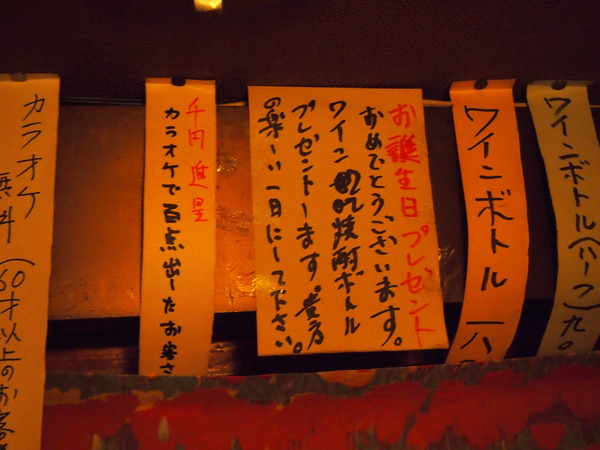 ワインボトル(ハーフ)九〇
ワインボトル 一八
お誕生日プレゼント
おめでとうございます。
ワイン 焼酎ボトル
プレゼントします。貴方
の楽しい一日にして下さい。
千円進呈
カラオケで百点出したお客さ
カラオケ
無料(60才以上のお客